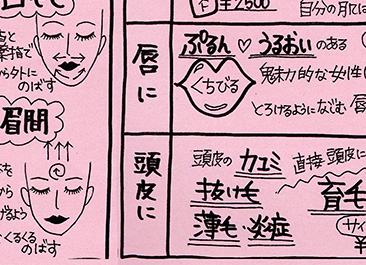 ¥2500
指と
薬指で
から外に
のばす
眉間
から
げるよう
くるくる
のばす
唇に
ぷるん♡うるおいのある
くちびる
魅力的な女性
とろけるようになじむ 唇
頭皮に
頭皮の カユミ 直接 頭皮に
抜け毛
育毛
薄毛・炎症
サイ
¥
自分の月には